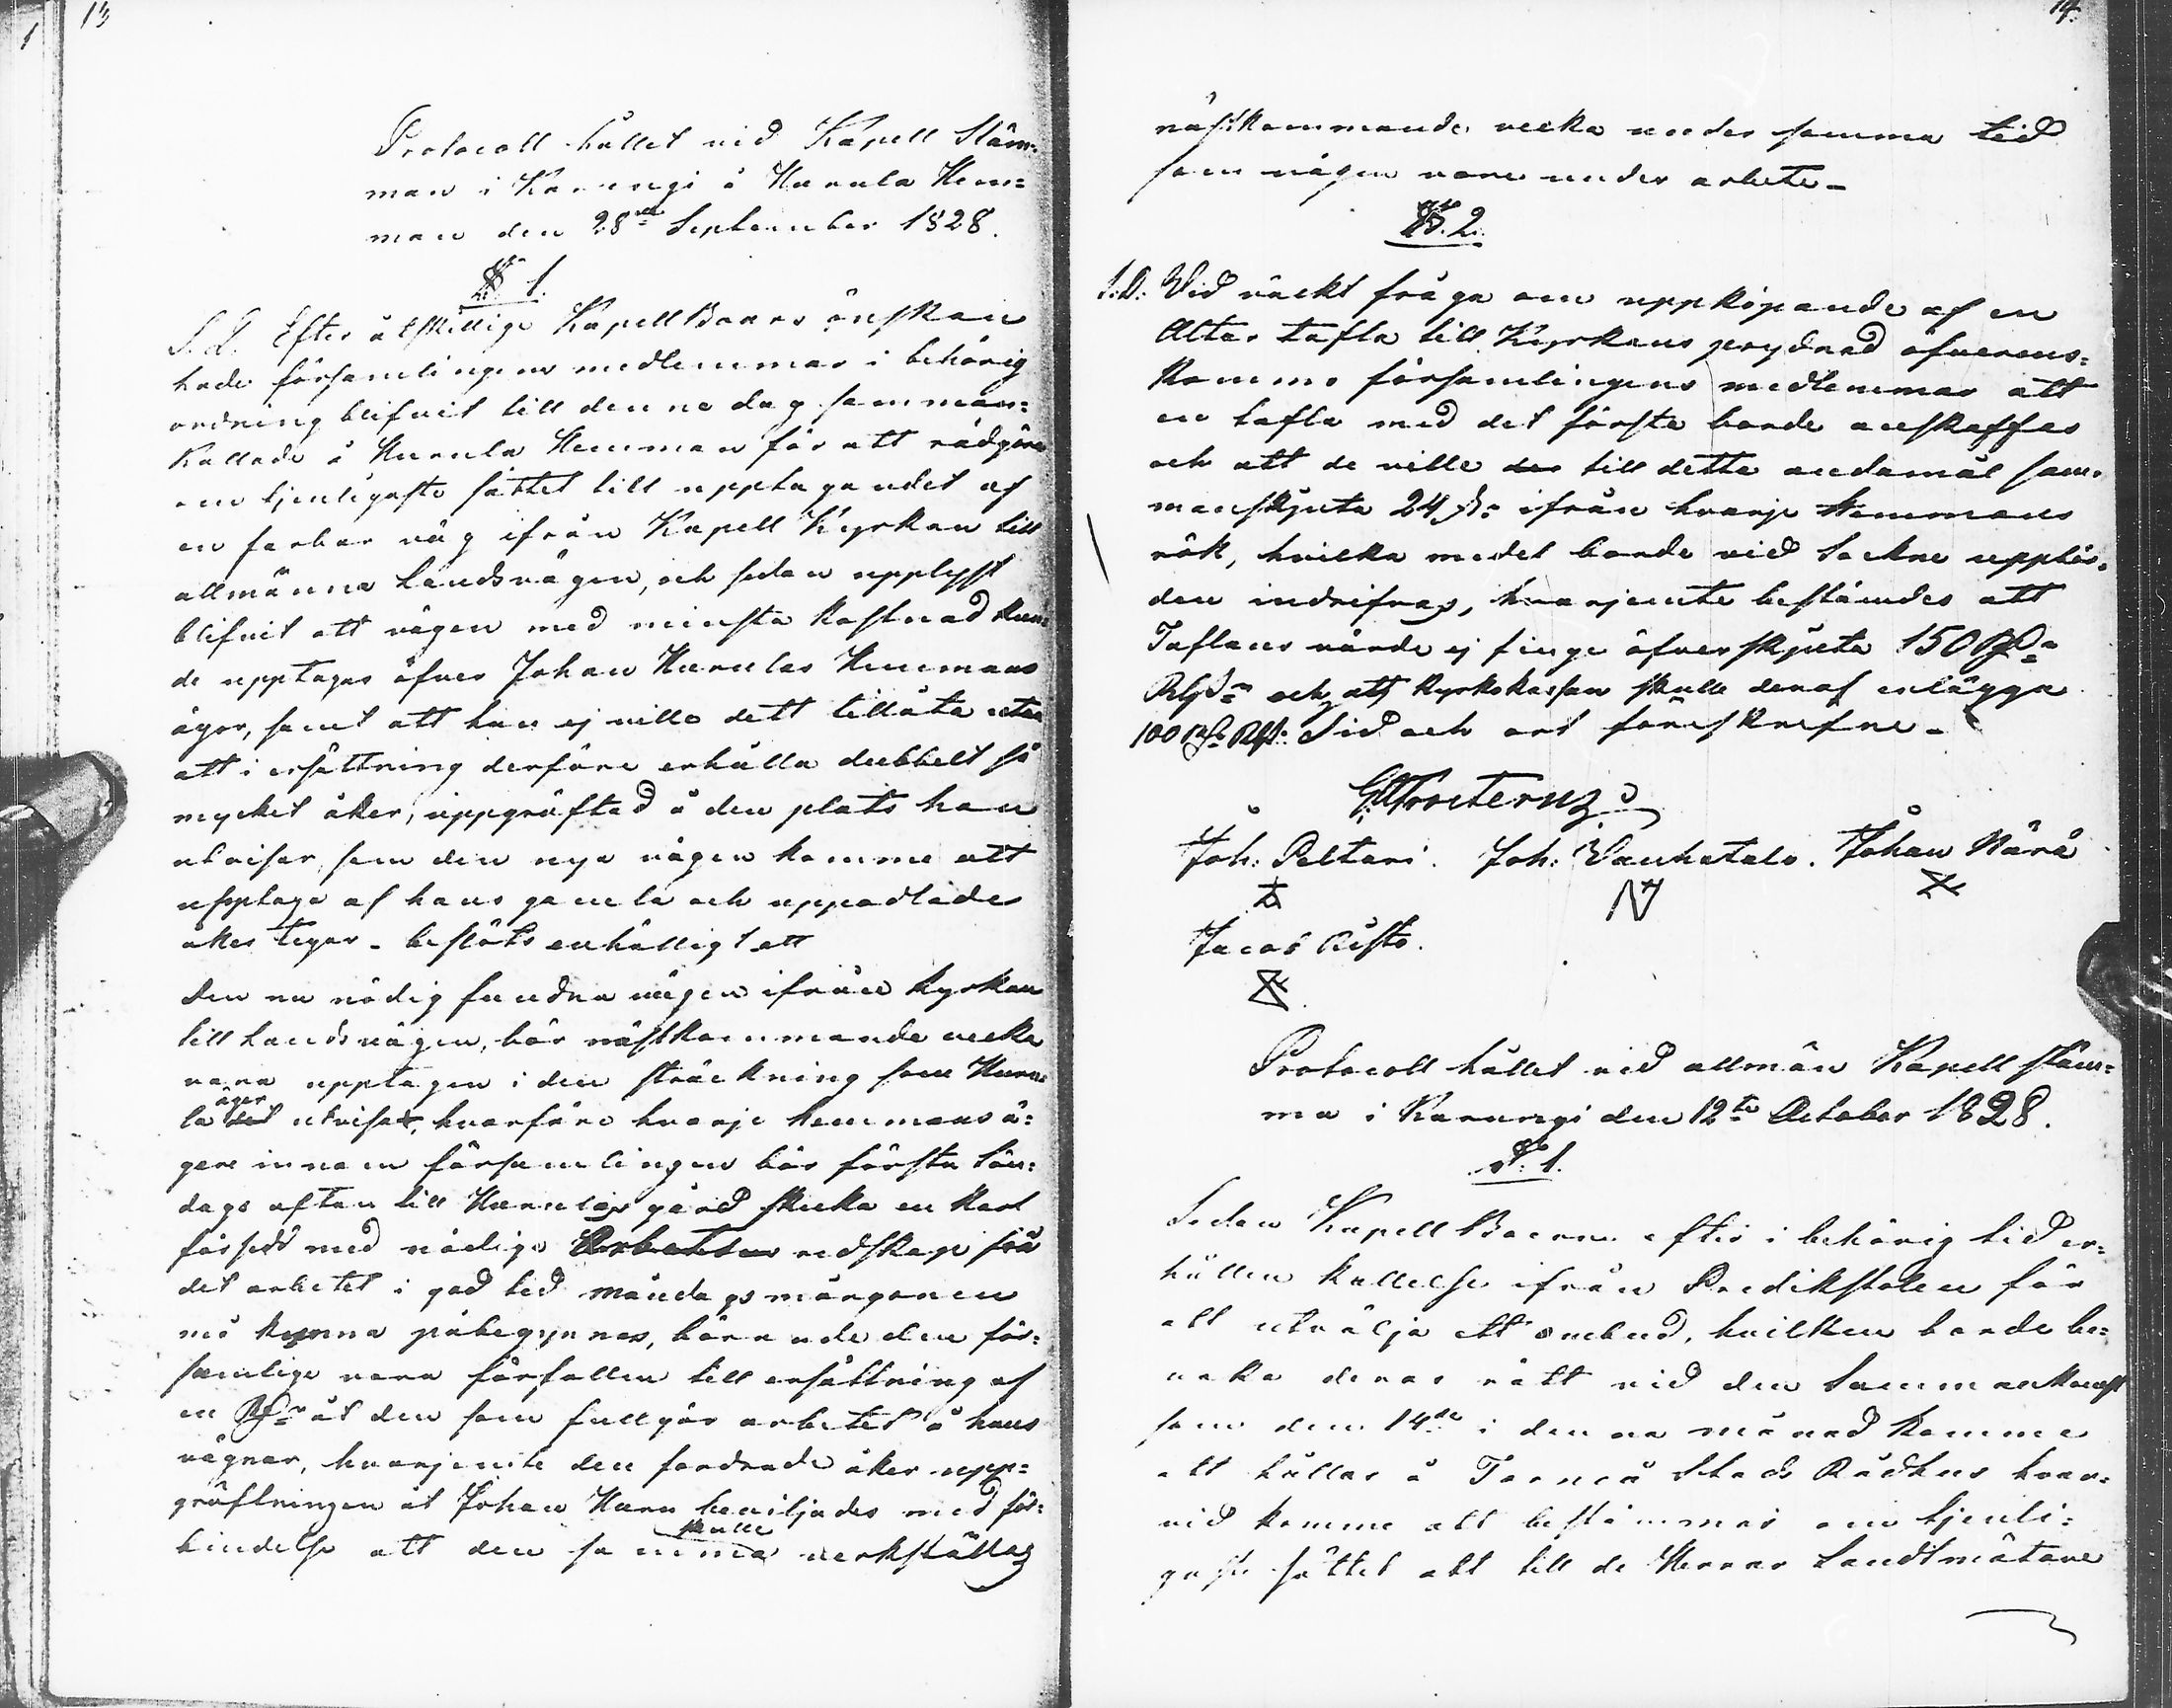 13
Protocoll hållet vid Kapell Stäm=
man i Karungi å Kurula Hem=
man den 28de September 1828.
§ 1.
S. D. Efter åtskillige Kapell Boars önskan
hade församlingens medlemmar i behörig
ordning blifvit till denne dag samman=
kallade å Kurula Hemman för att rådgöra
om tjenligaste sättet till upptagandet af
en farbar väg ifrån Kapell Kyrkan till
allmänna Landsvägen, och sedan upplyst
blifvit att vägen med minsta kostnad kun=
de upptagas öfver Johan Kurulas Hemmans
ägor, samt att han ej ville dett tillåta utan
att i ersättning derföre erhålla dubbelt så
mycket åker, uppgräftad å den plats han
utvisar, som den nya vägen komme att
upptaga af hans gamla och uppodlade
åker tegar - beslöts enhälligt att
den nu nödig fundna vägen ifrån Kyrkan
till landsvägen, bör nästkommande vecka
vara upptagen i den sträckning som Kuru=
äger
la det utvisat, hvarföre hvarje hemmans ä=
gare innom församlingen bör första Sön=
dags aftan till Kurulas gård skicka en karl
försedd med nödige Arbetare redskap så
det arbetet i god tid måndags morgonen
må kunna påbegynnas, börande den för=
samlige vara förfallen till ersättning af
en Rdr åt den som fullgör arbetet å hans
vägnar, hvarjemte den fordrade åker upp=
gräftningen åt Johan Kuru beviljades med för=
skulle
bindelse att den samma verkställas
14.
nästkommande vecka under samma tid
som vägen vore under arbete -
§. 2.
S. D. Vid väckt fråga om uppköpande af en
Altar tafla till Kyrkans prydnad öfverens=
kommo församlingens medlemmar att
en tafla med det första borde anskaffas
och att de ville der till detta ändamål sam=
manskjuta 24 s. ifrån hvarje Hemmans
rök, hvilka medel borde vid Sockne uppbör=
den indrifvas, hvarjemte bestämdes att
Taflans värde ej finge öfverskjuta 150 Rdr
Rgs och att Kyrkokassan skulle deraf erlägga
100 Rdr Rgs: Tid och ort föreskrefne -
Joh: Peltari. Joh: Vanhatalo. Johan Närä
Jacob Risto.
Protocoll hållet vid allmän Kapell stäm=
ma i Karungi den 12te October 1828.
§. 1.
Sedan Kapell Boerne efter i behörig tid er=
hållen kallelse ifrån Predikstolen för
att utvälja ett ombud, hvilken borde be=
vaka deras rätt vid den Sammankomst
som den 14de i denna månad komme
att hållas å Torneå Stads Rådhus hvar=
vid komme att bestämmas om tjenli=
gaste sättet att till de Herrar Landtmätare